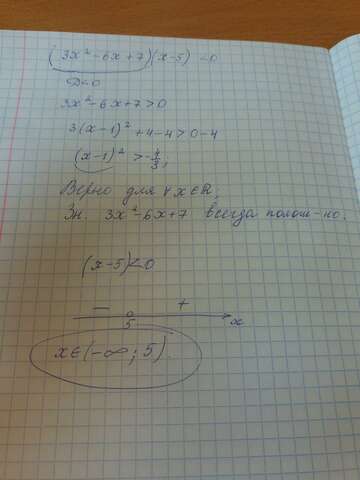 (3x²-6x+7)(x-5) <0
D<0
3x²-6x+7>0
3(x-1)²+4-4>0-4
(x-1)²>-4/3;
Верно для ∀x∈R,
Зн. 3x²-6x+7 всегда полож-но.
(x-5)<0
- +
5 x
x∈(-∞; 5).